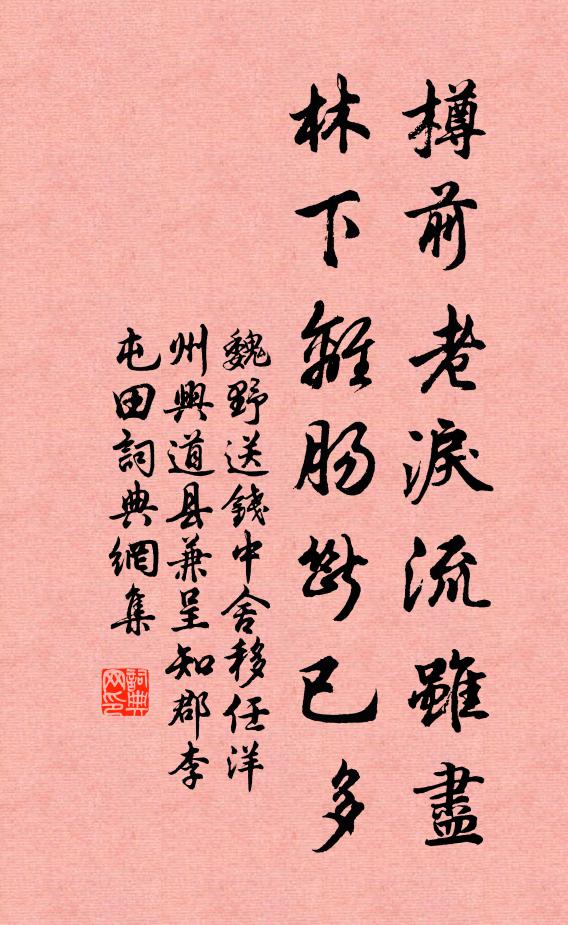 樽前老淚流雖盡
林下離腸斷已多
魏野送錢中舍移任洋
州興道县兼呈知郡李
屯田詞典網集
詞典
网印